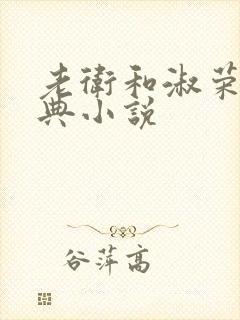 老衛和淑荣
典小説
谷萍高